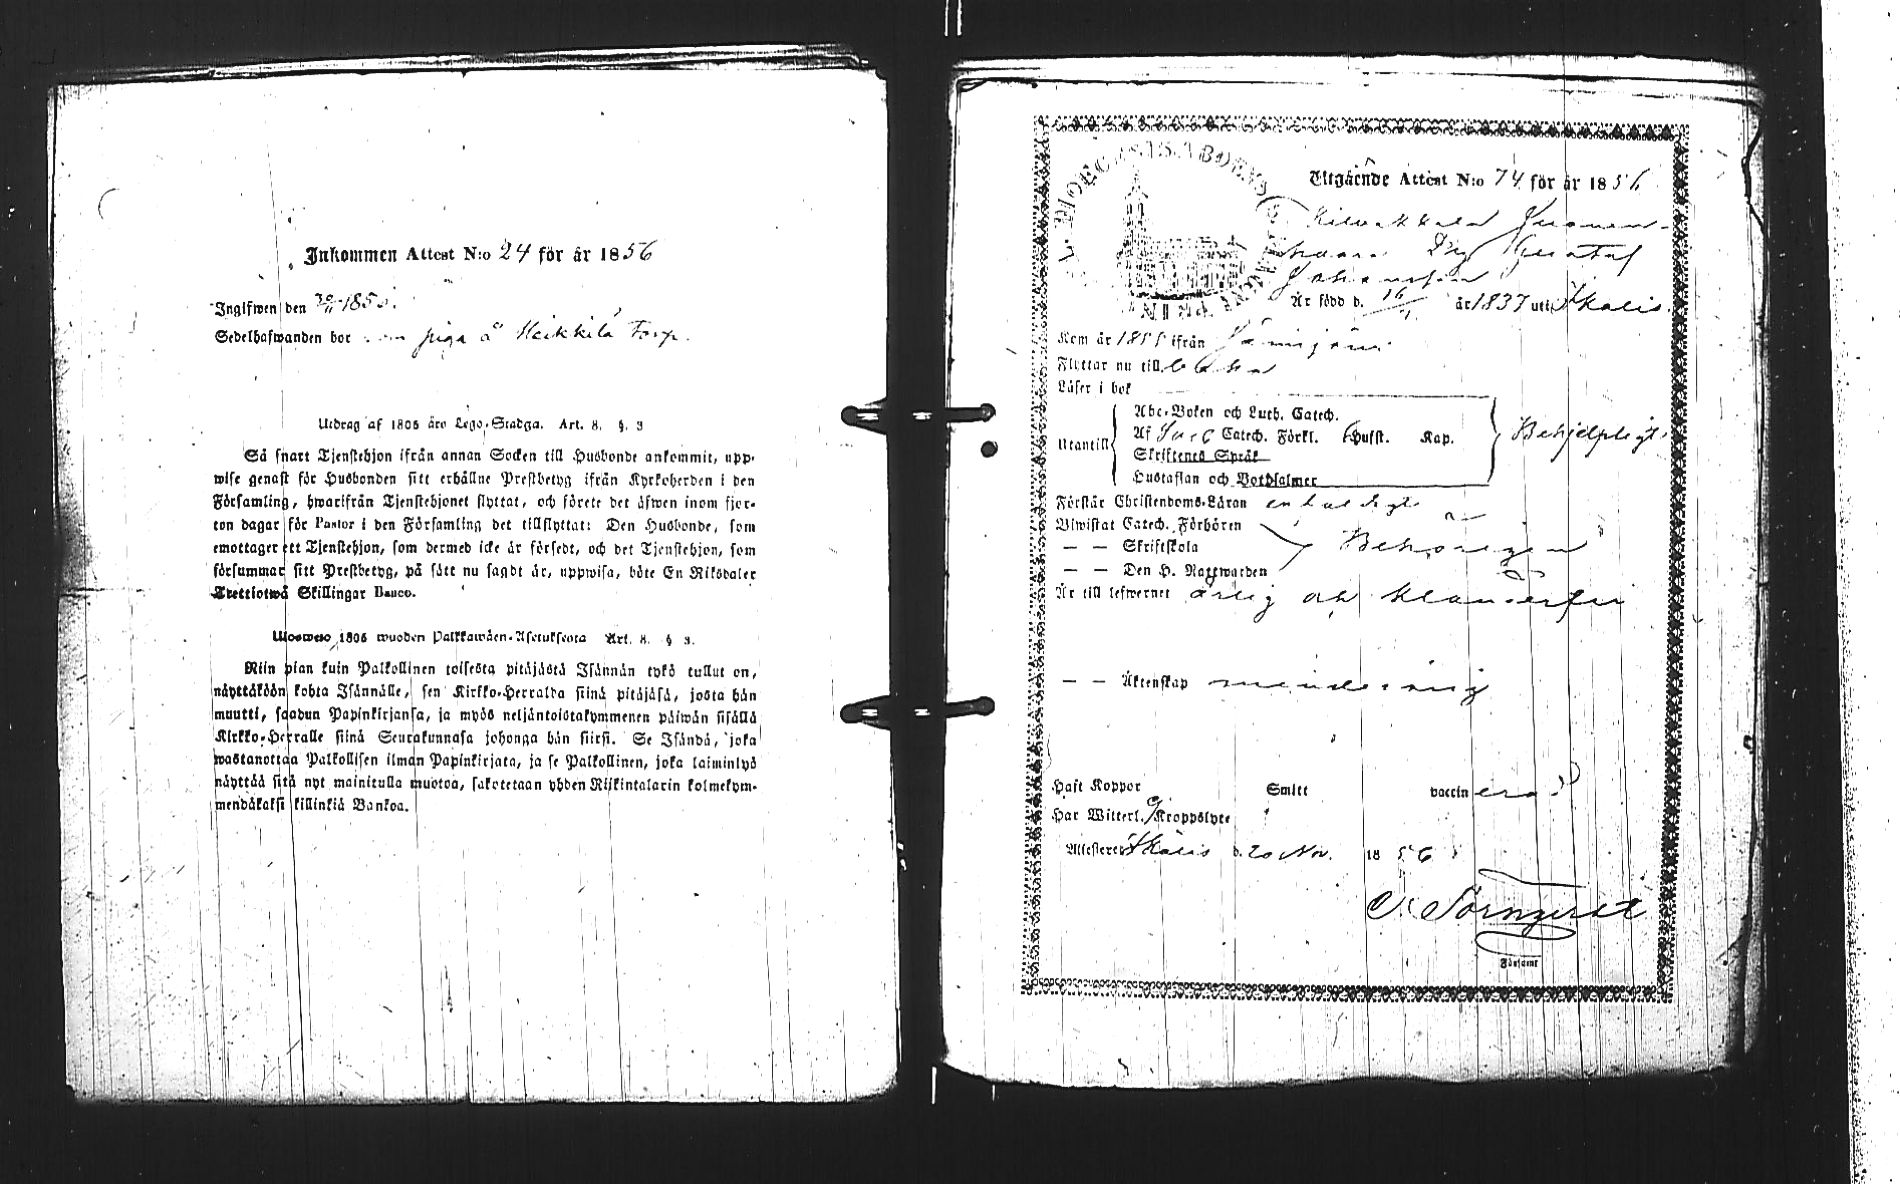 Inkommen Attest N:o 24 för år 1856
Ingifwen den 30/11 185
Sedelhafwanden bor som piga å Heikkilä Torp.
Utdrag af 1805 års Lego-Stadga. Art. 8. §. 3
Så snart Tjenstehjon ifrån annan Socken till Husbonde ankommit, upp-
wise genast för Husbonden sitt erhållne Prestbetyg ifrån Kyrkoherden i den
Församling, hwarifrån Tjenstehjonet flyttat, och förete det äfwen inom fjor-
ton dagar för Pastor i den Församling det tillflyttat: Den Husbonde, som
emottager ett Tjenstehjon, som dermed icke är försedt, och det Tjenstehjon, som
försummar sitt Prestbetyg, på sätt nu sagdt är, uppwisa, böte En Riksdaler
Trettiotwå Skillingar Banco.
Ulosweto 1805 wuoden Palkkawäen-Asetuksesta Art. 8. § 3.
Niin pian kuin Palkollinen toisesta pitäjästä Isännän tykö tullut on,
näyttäköön kohta Isännälle, sen Kirkko-Herralda siinä pitäjäsä, josta hän
muutti, saadun Papinkirjansa, ja myös neljäntoistakymmenen päiwän sisällä
Kirkko-Herralle siinä Seurakunnasa johonga hän siirsi. Se Isändä, joka
wastanottaa Palkollisen ilman Papinkirjata, ja se Palkollinen, joka laiminlyö
näyttää sitä nyt mainitulla muotoa, sakotetaan yhden Riikintalarin kolmekym-
mendäkaksi killinkiä Bankoa.
Utgående Attest N:o 74 för år 1856
Gustaf
Johansson
Är född d. 16/ år 1837 uti Ikalis
Kom år 185 ifrån Jämijärvi
Flyttar nu till
Läser i bok
Utantill
Abc-Boken och Luth. Catech.
Af Catech. Förkl. Hufst. Kap.
Skriftenes Språk
Hustaflan och Botpsalmer
Behjelpligt
Förstår Christendoms-Läran enhaldigt
Biwistat Catech. Förhören
— — Skriftskola
— — Den H. Nattwarden
Behörigen
Är till lefwernet ärlig och
— — Äktenskap minderårig
Haft Koppor Smitt vaccinerad
Har Witterl. Kroppslyte
Attesterer Ikalis d. 20 Nov. 1856